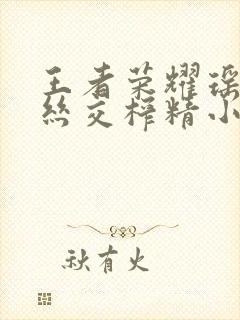 王者荣耀瑶
丝交榨精小
秋有火